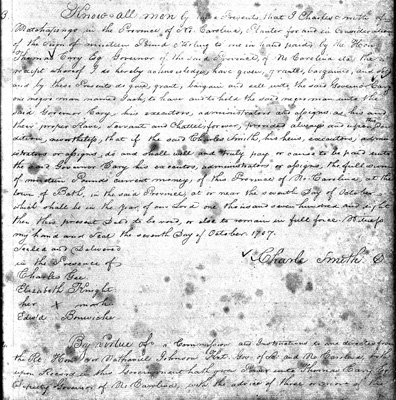 Know all men by these Presents, that I Charles Smith of
in the Province, of No. Carolina, Planter for and in consideration
of the Sum of nineteen Pound Sterling to me in hand paid, by the Hon.
Thomas Cary Esq Governor of the said Province, of No Carolina the
receipt whereof I do hereby acknowledge, have given, granted, bargained, and
and by these Presents do give, grant, bargain and sell unto the said Governor Cary
one negro man named Jack, to have and to hold the said negro man unto the
said Governor Cary, his executors, administrators or assigns, as his
their proper Slave, Servant and Chattel, forever, provided always and
that if the said Charles Smith, his heirs, executors, admin
istrators or assigns, do and shall well and truly pay or cause to be paid unto
the said Governor Cary his executors, administrators or assigns, the full sum
of nineteen Pounds money, of the Province of No. Carolina, at the
town of Bath, in the said Province at or near the seventh Day of October
which shall be in the year of our Lord one thousand seven hundred and eight
then this present Deed to be void, or else to remain in full force. Witness
my hand and Seal the seventh Day of October 1707.
Sealed and Delivered
Charles Smith
in the Presence of
Charles Gee
Elizabeth Knight
her x mark
Edwd
By Virtue of a Commission and Instructions to me directed from
the Rt. Honl. Sir Nathaniel Johnson Knt. Gov. of So and No Carolina,
upon Record in this Government hath given Power unto Thomas Cary Esq
Deputy Governor of No Carolina, with the advice of three or more of his